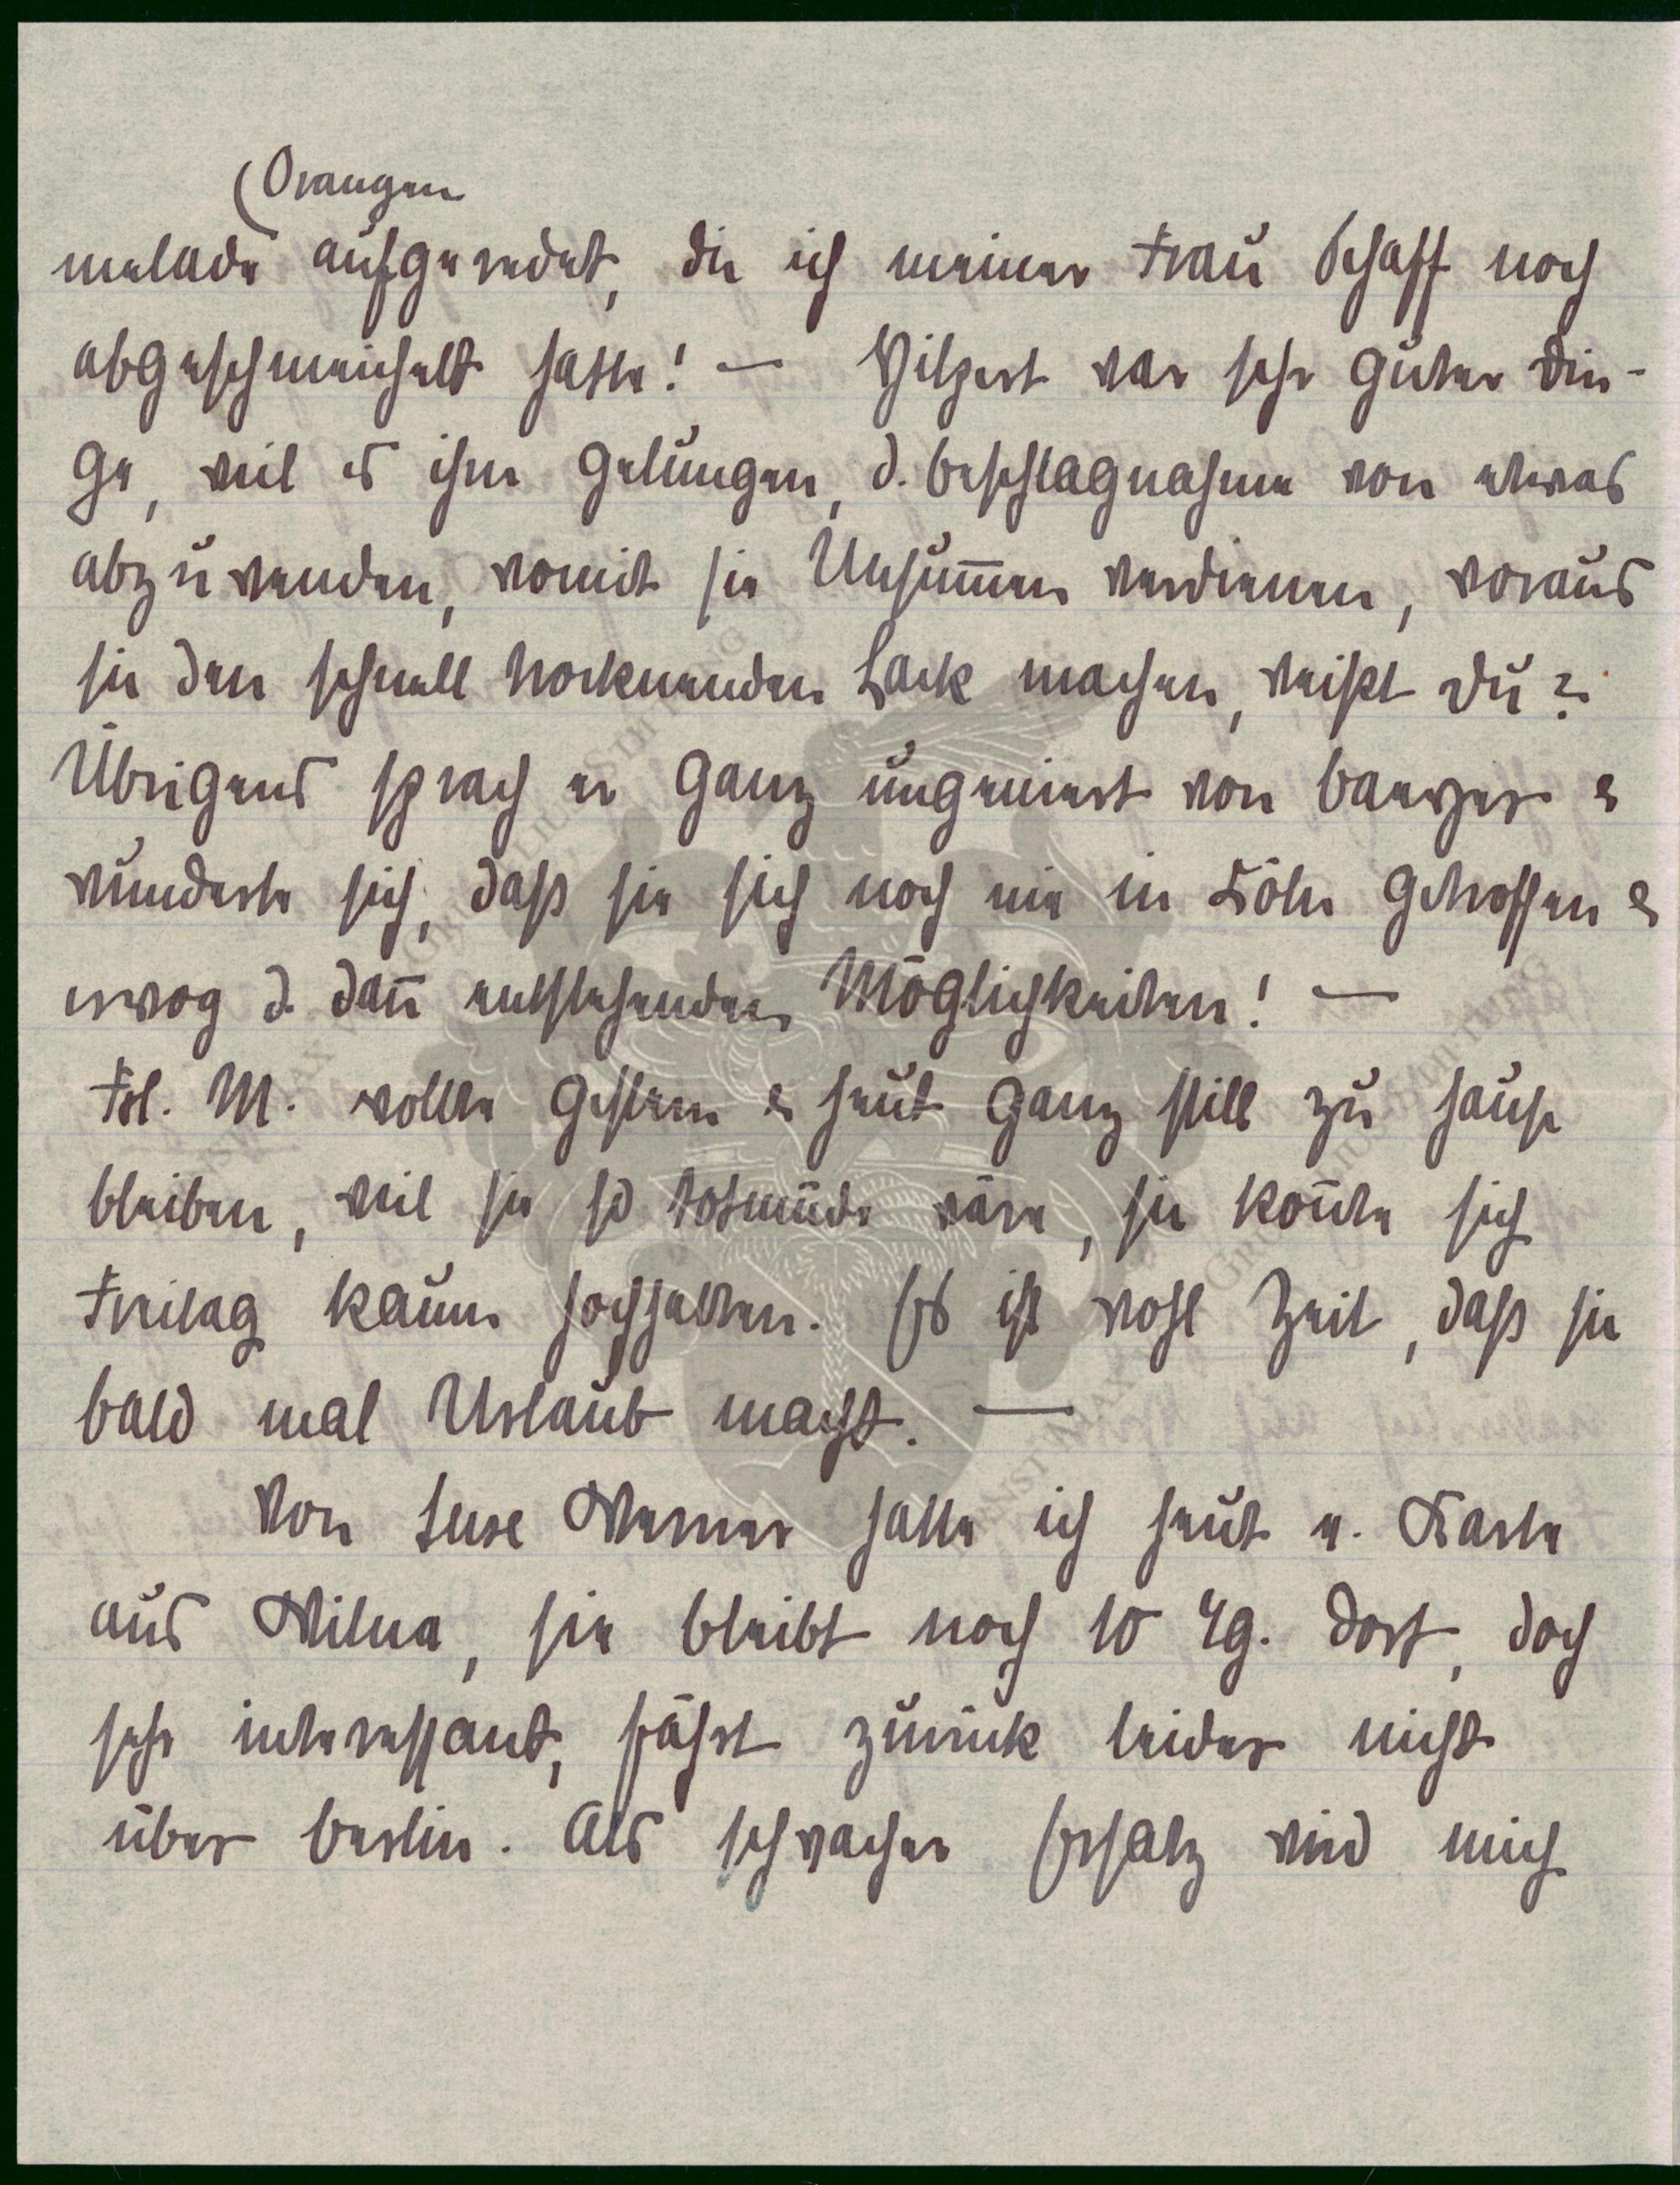 (Orangen
melade aufgeredet, die ich meiner Frau Schaff noch
abgeschmeichelt hatte! — Hilpert war sehr guter Din-
ge, weil es ihm gelungen, d. Beschlagnahme von etwas
abzuwenden, womit sie Unsum̅en verdienen, woraus
sie den schnell trocknenden Lack machen, weißt Du?
Übrigens sprach er ganz ungeniert von Baerger &
wunderte sich, daß sie sich noch nie in Köln getroffen &
erwog d. dan̅ entstehenden Möglichkeiten! —
Frl. M. wollte gestern & heut ganz still zu Hause
bleiben, weil sie so totmüde wäre, sie kon̅te sich
Freitag kaum hochhalten. Es ist wohl Zeit, daß sie
bald mal Urlaub macht. —
Von Luse Werner hatte ich heut e. Karte
aus Wilna, sie bleibt noch 10 Tg. dort, doch
sehr interessant, fährt zurück leider nicht
über Berlin. Als schwacher Ersatz wird mich